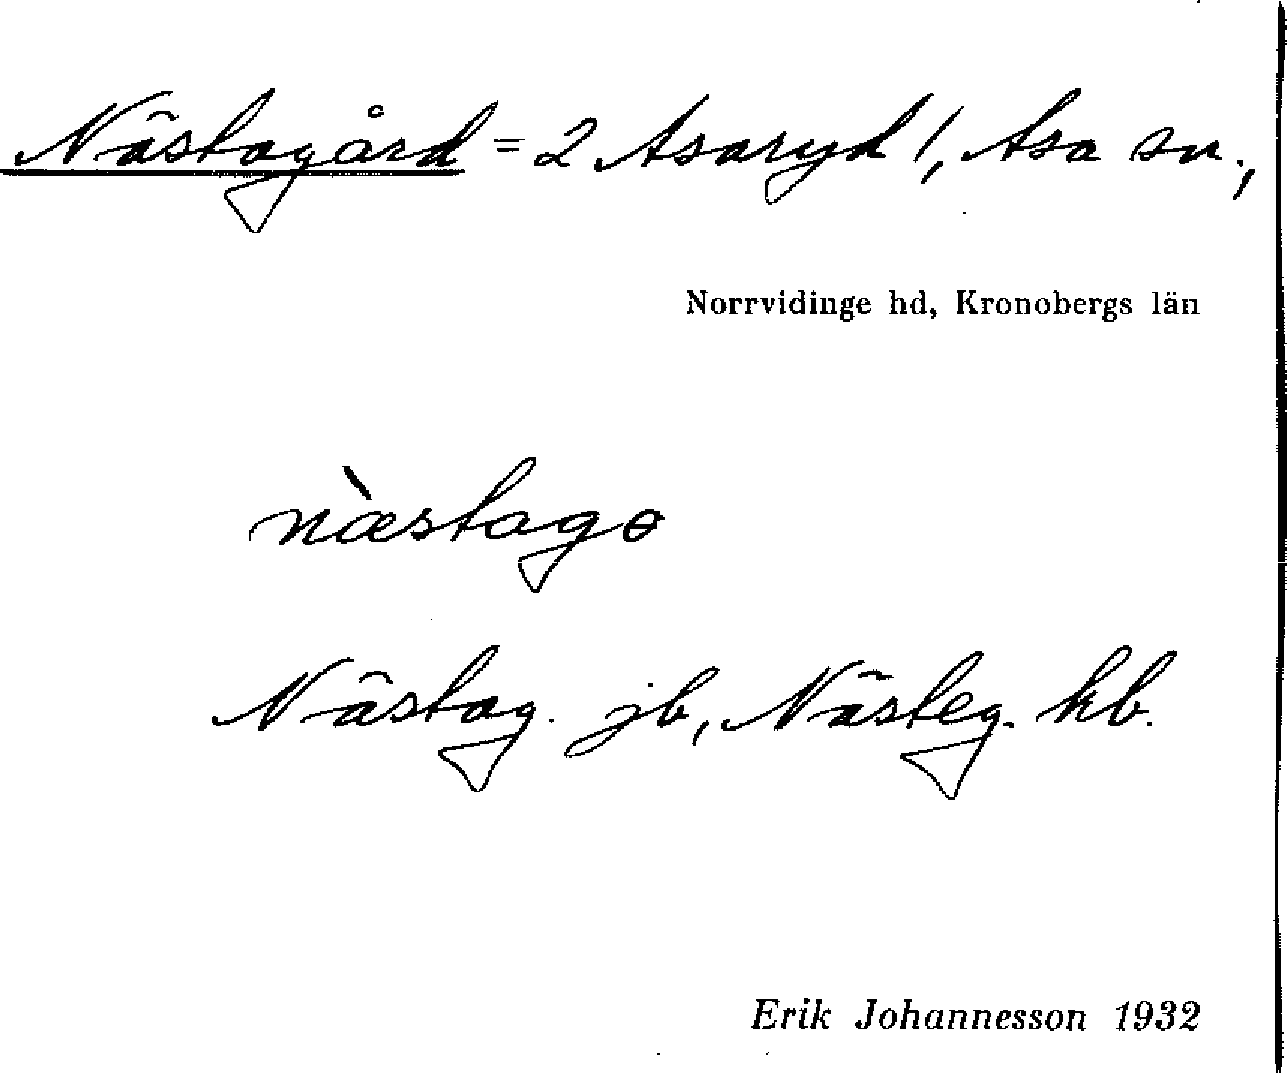 Nästagård = 2 Asaryd 1, Asa sn.,
Norrvidinge hd, Kronobergs län
næ̀stagɵ
Nästag. jb, Nästeg. kb.
Erik Johannesson 1932